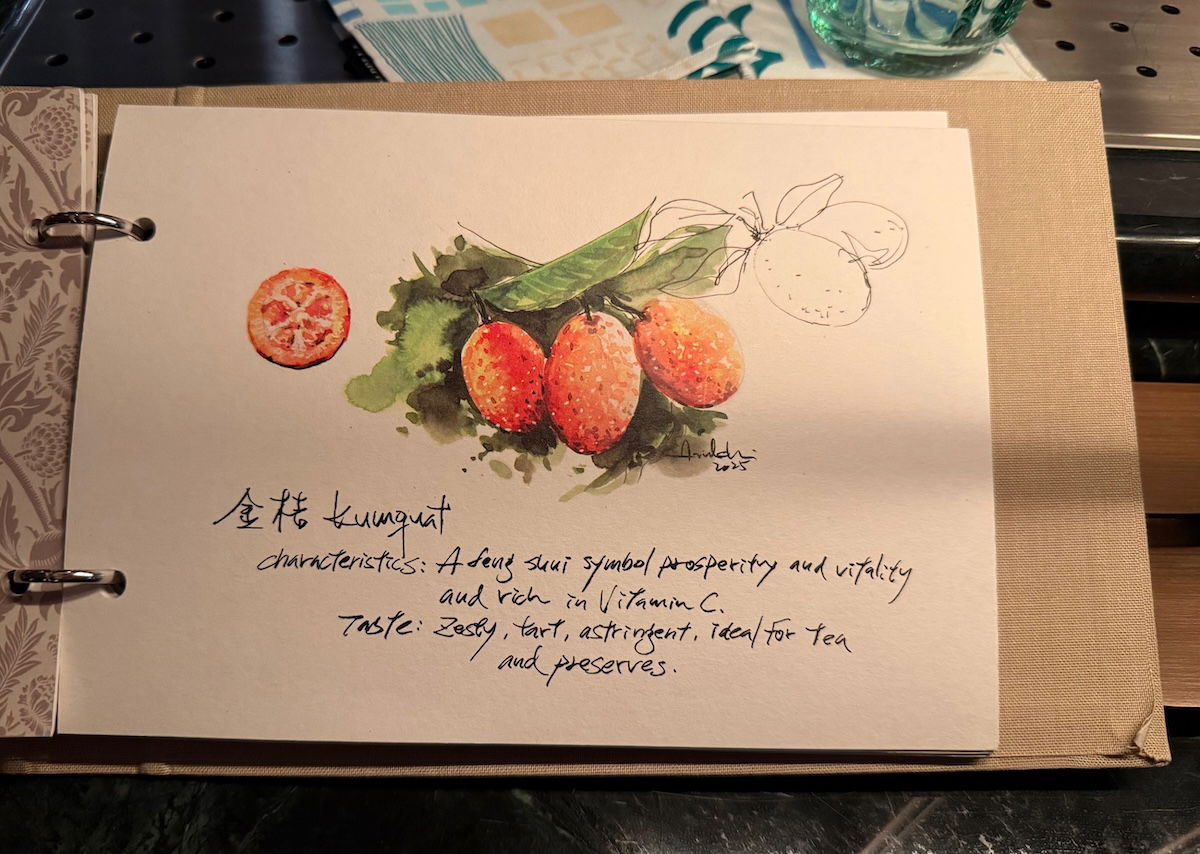 2025
金桔 kumquat
characteristics: A feng shui symbol prosperity and vitality
and rich in Vitamin C.
Taste: Zesty, tart, astringent, ideal for tea
and preserves.